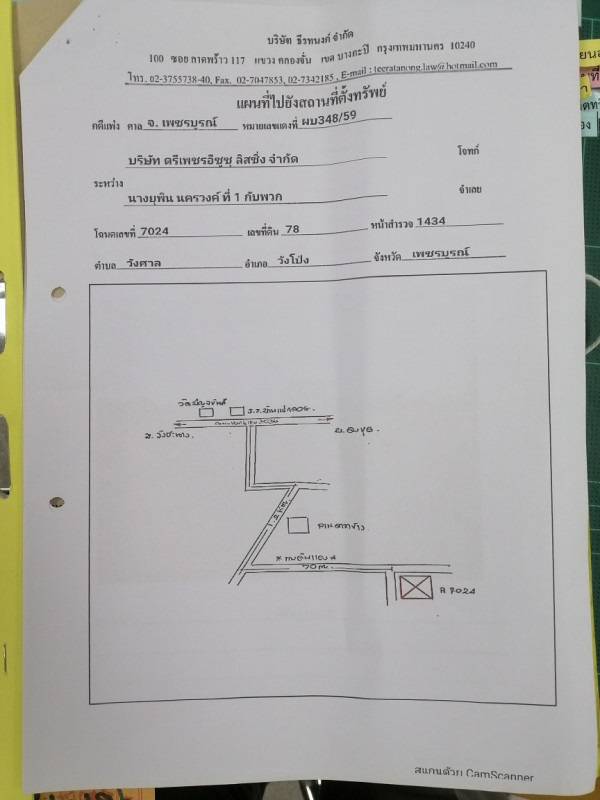 บริษัท ธีรทนงค์ จำกัด
100 ซอย ลาดพร้าว 117 แขวง คลองจั่น เขต บางกะปิ กรุงเทพมหานคร 10240
โทร. 02-3755738-40, Fax. 02-7047853, 02-7342185 , E-mail : teeratanong.law@hotmail.com
แผนที่ไปยังสถานที่ตั้งทรัพย์
คดีแพ่ง ศาล จ. เพชรบูรณ์ หมายเลขแดงที่ ผบ348/59
บริษัท ตรีเพชรอีซูซุ ลิสซิ่ง จำกัด โจทก์
ระหว่าง
นางยุพิน นครวงค์ ที่ 1 กับพวก จำเลย
โฉนดเลขที่ 7024 เลขที่ดิน 78 หน้าสำรวจ 1434
ตำบล วังศาล อำเภอ วังโป่ง จังหวัด เพชรบูรณ์
1.2 กม.
70 ม.
7024
สแกนด้วย CamScanner